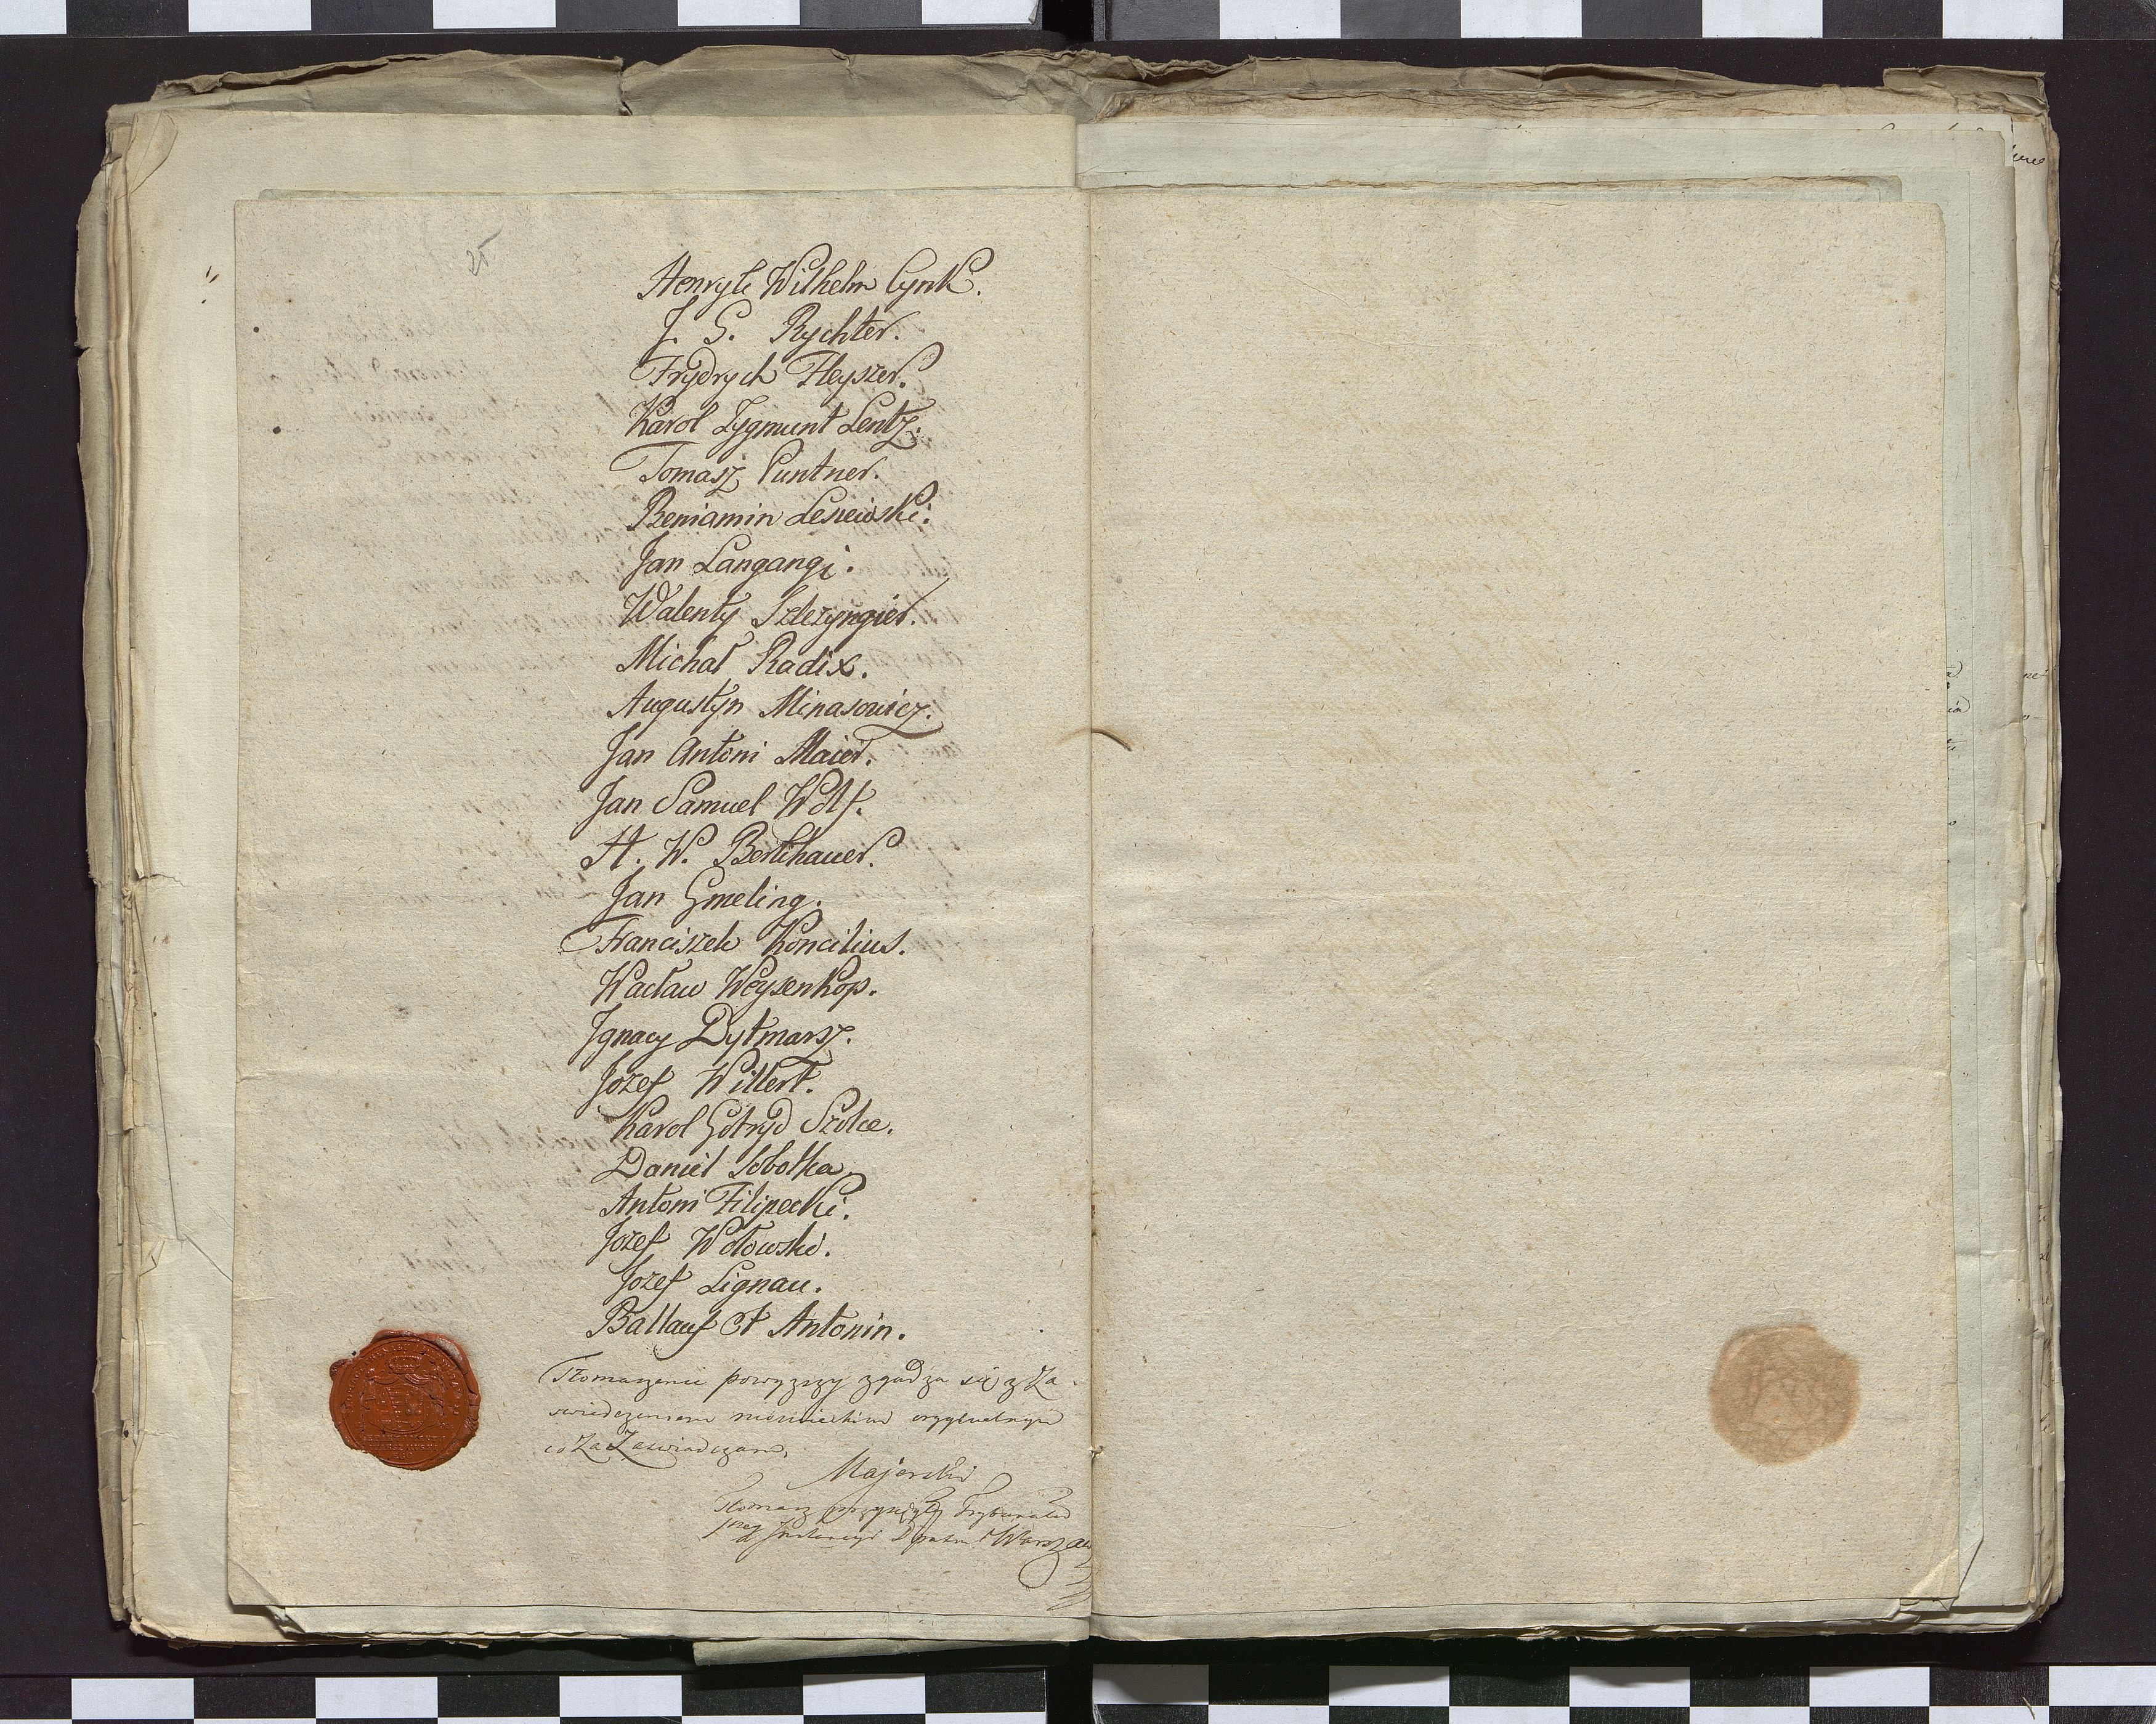 25
Henryk Wilhelm Cynk.
J. G. Rychter.
Frydrych Fleyszer.
Karol Zygmunt Lentz.
Tomasz Puntner.
Beniamin Lesiewski.
Jan Langangi.
Walenty Szlezyngier.
Michał Radix.
Augustyn Minasowicz.
Jan Antoni Maier.
Jan Samuel Wolf.
H. W. Bertchauer.
Jan Gmeling.
Franciszek Koncilius.
Wacław Weysenkop.
Ignacy Dytmarsz.
Jozef Willert.
Karol Gotryd Szolce.
Daniel Sobotka
Antoni Filipecki.
Jozef Wołowski.
Jozef Lignau.
Ballauf et Antonin.
Tłomaczenie powyzszy zgadza się z Za-
swiedczeniem niemieckim orygnalnym
co Za Zaswiadczam,
Majerski
Tłomacz przysięgły Trybunału
Instancyi Dpartu Warszaw